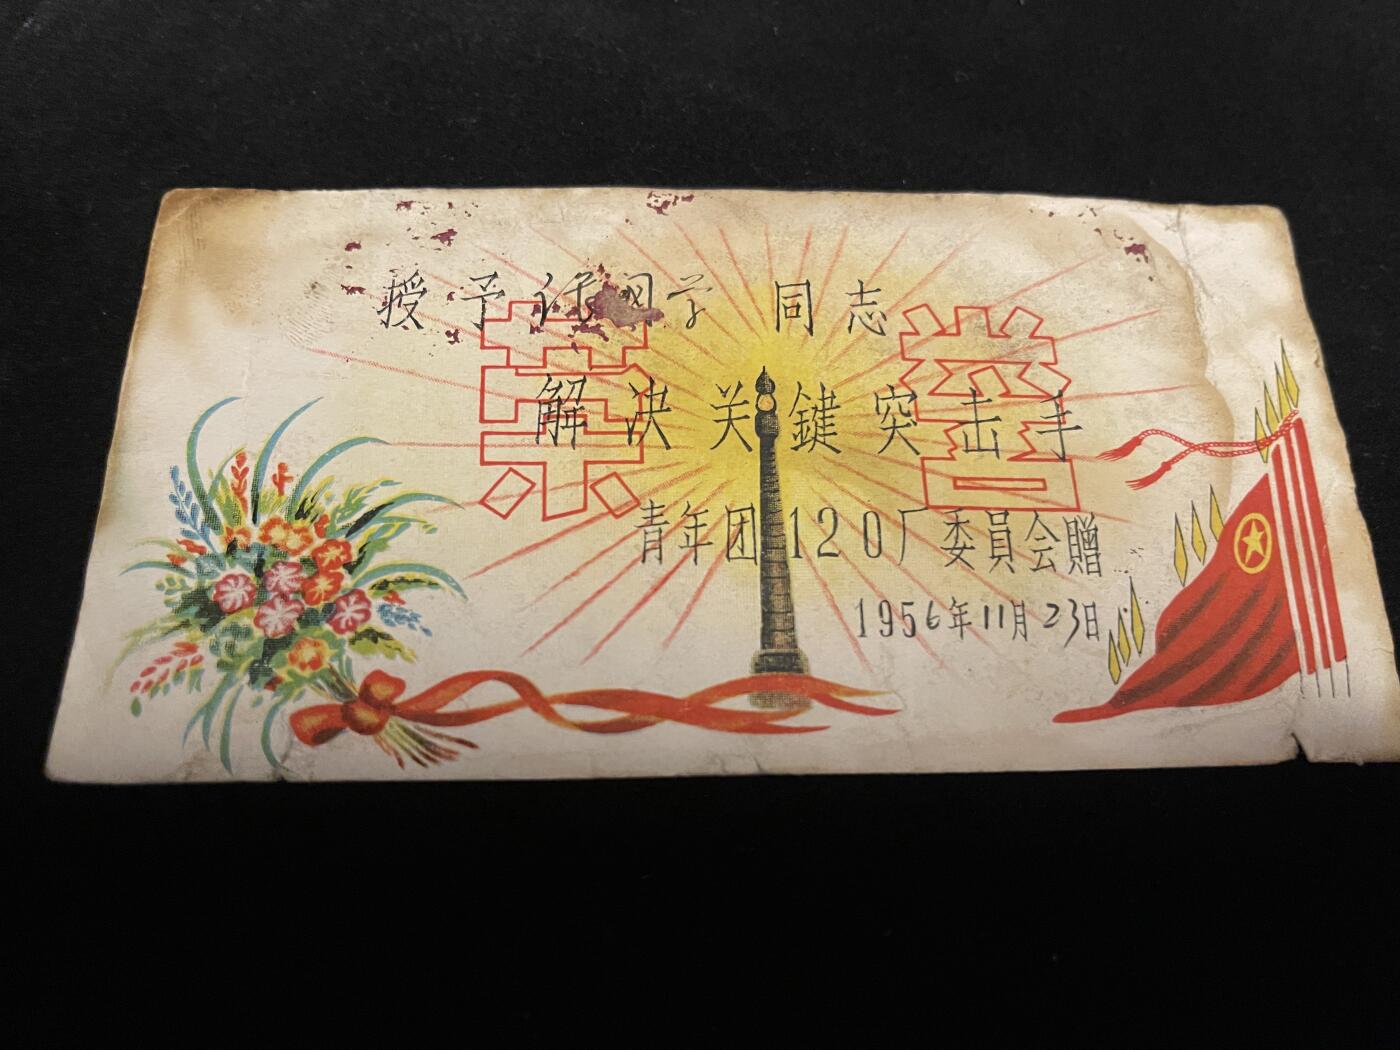 授予 学 同志
荣誉
解决关鍵突击手
青年团120厂委員会贈
1956年11月23日